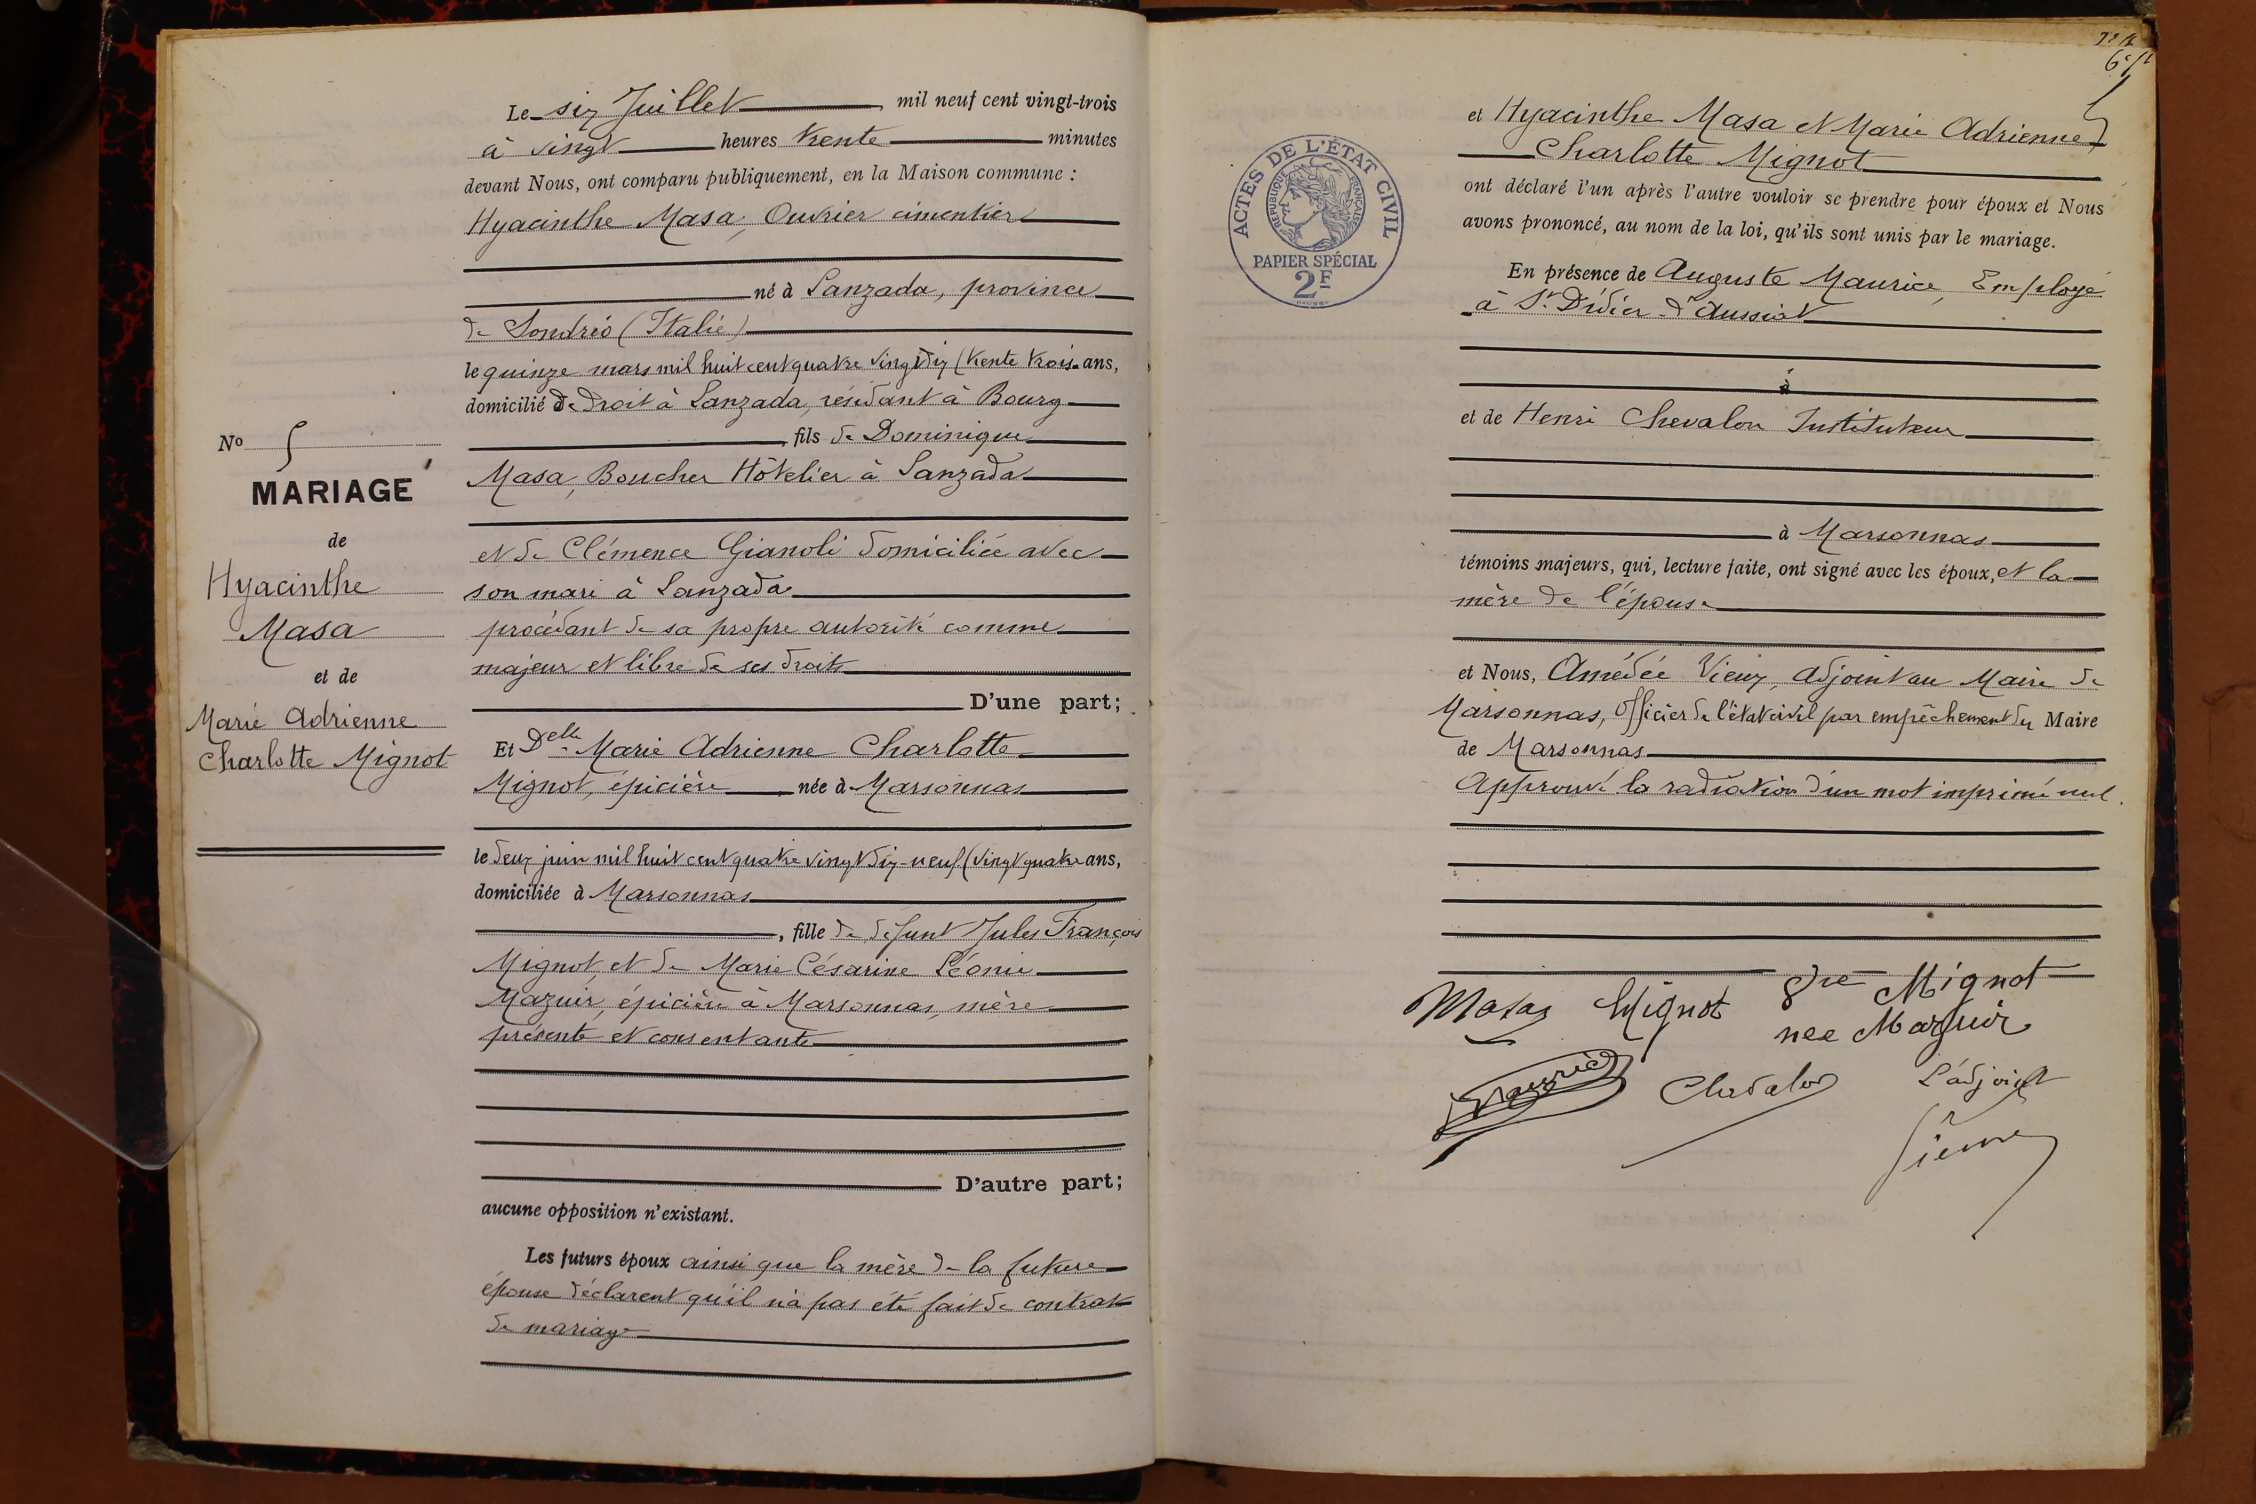 Le six Juillet mil neuf cent vingt-trois
à vingt heures trente minutes
devant Nous, ont comparu publiquement, en la Maison commune :
Hyacinthe Masa, Ouvrier cimentier
né à Lanzada, province
de Sondrio (Italie)
le quinze mars mil huit cent quatre vingt dix (trente trois ans,
domicilié de droit à Lanzada, résidant à Bourg
, fils de Dominique
Masa, Boucher Hôtelier à Lanzada
et de Clémence Gianoli domiciliée avec
son mari à Lanzada
procédant de sa propre autorité comme
majeur et libre de ses droits
D'une part;
Et Delle Marie Adrienne Charlotte
Mignot, épicière née à Marsonnas
le deux juin mil huit cent quatre vingt dix-neuf (vingt quatre ans,
domiciliée à Marsonnas
, fille de défunt Jules François
Mignot, et de Marie Césarine Léonie
Mazuir, épicière à Marsonnas, mère
présente et consentante
D'autre part;
aucune opposition n'existant.
Les futurs époux ainsi que la mère de la future
épouse déclarent qu'il n'a pas été fait de contrat
de mariage
No 5
MARIAGE
de
Hyacinthe
Masa
et de
Marie Adrienne
Charlotte Mignot
ACTES DE L'ÉTAT CIVIL
RÉPUBLIQUE FRANÇAISE
PAPIER SPÉCIAL
2F
et Hyacinthe Masa et Marie Adrienne
Charlotte Mignot
ont déclaré l'un après l'autre vouloir se prendre pour époux et Nous
avons prononcé, au nom de la loi, qu'ils sont unis par le mariage.
En présence de Auguste Maurice, Employé
à St Didier d'Aussiat
à
et de Henri Chevalon Instituteur
à Marsonnas
témoins majeurs, qui, lecture faite, ont signé avec les époux, et la
mère de l'épouse
et Nous, Amédée Vieux, adjoint au Maire de
Marsonnas, Officier de l'état civil par empêchement du Maire
de Marsonnas
Approuvé la radiation d'un mot imprimé nul.
Masa Mignot Vve Mignot
nee Mazuir
Maurice Chevalon L'adjoint